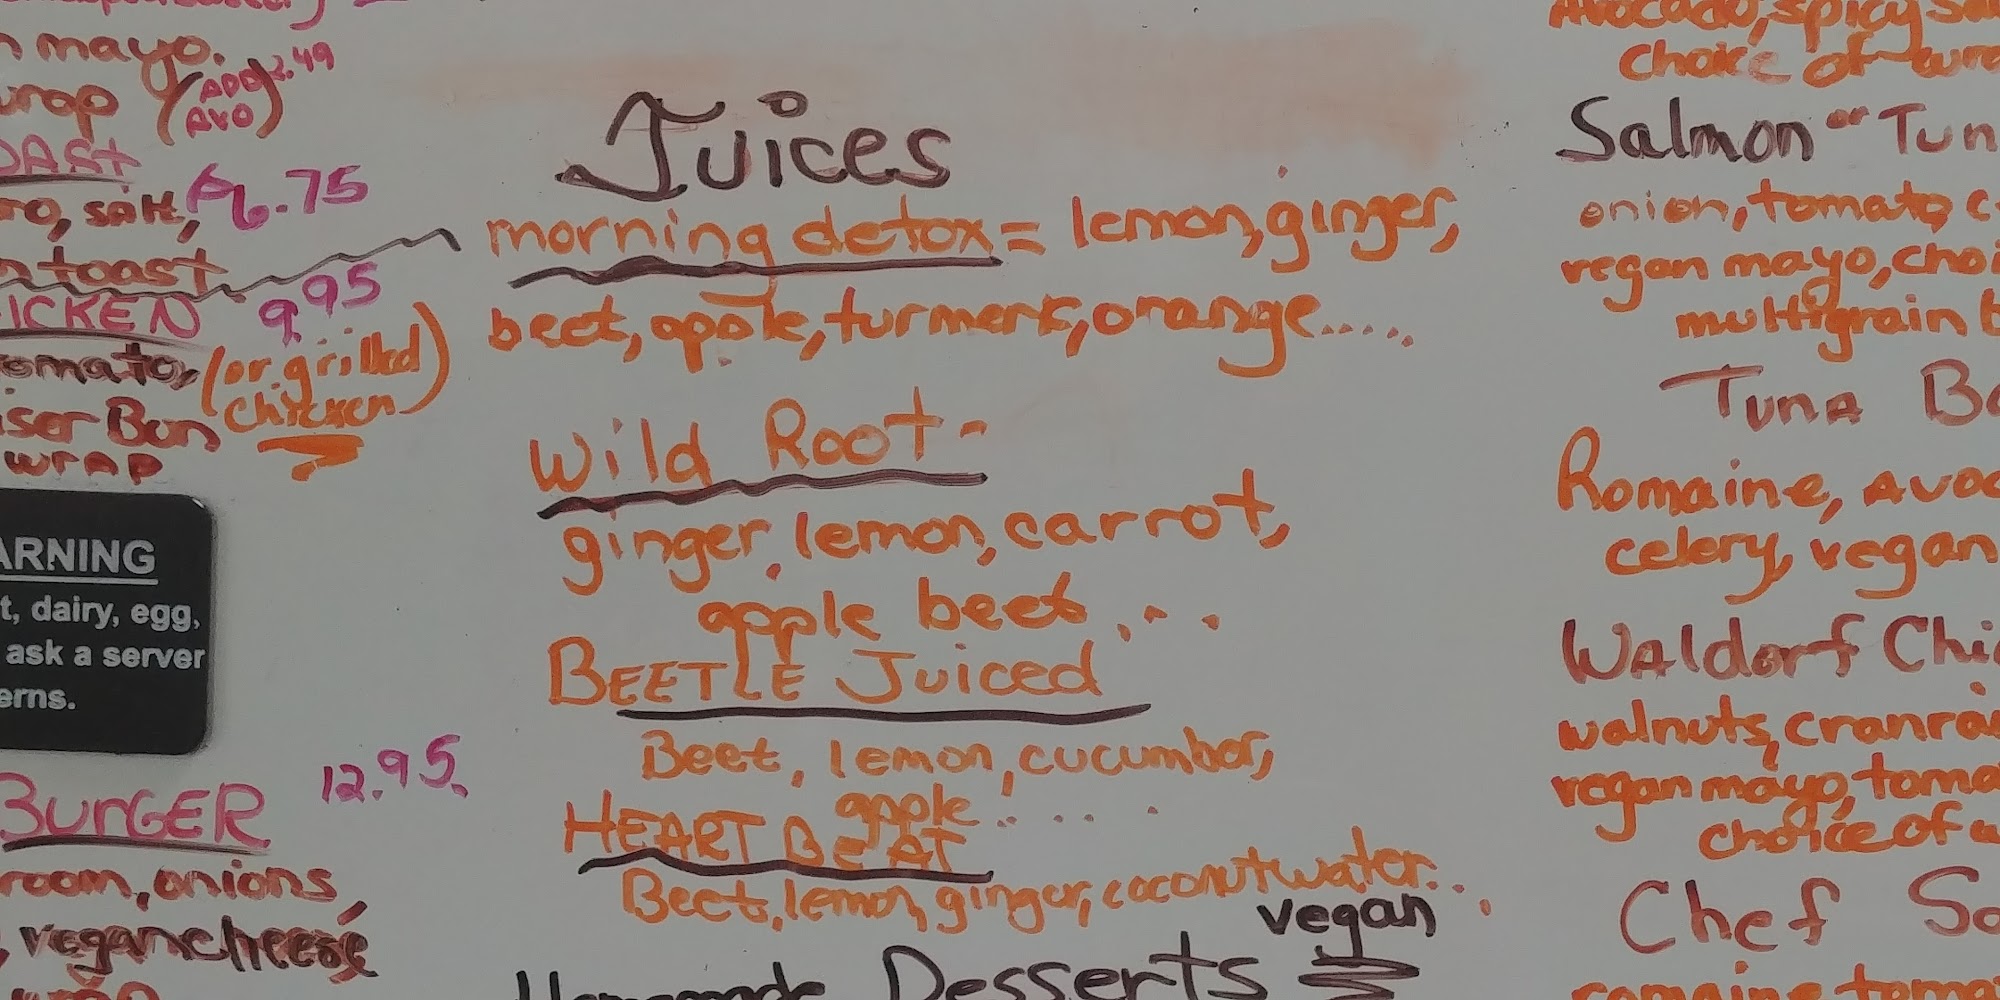 n mayo.
wrap (ADD AVO) 2.49
OAST
ro, salt, $6.75
n toast
ICKEN 9.95
omato, (or grilled
chicken)
iser Bun
wrap
ARNING
t, dairy, egg,
ask a server
erns.
BURGER 12.95.
room, onions,
, vegan cheese
Juices
morning detox = lemon, ginger,
beet, apple, turmeric, orange.....
Wild Root -
ginger, lemon, carrot,
apple beet....
BEETLE Juiced
Beet, lemon, cucumber,
apple.....
HEART BEAT
Beet, lemon, ginger, coconut water...
Homemade Desserts vegan
Avocado, spicy
choice of
Salmon or Tun
onion, tomato, c
vegan mayo, choi
multigrain b
Tuna
Romaine, Avoc
celery, vegan
Waldorf Chi
walnuts, cranrai
vegan mayo, toma
choice of w
Chef Sa
romaine toma